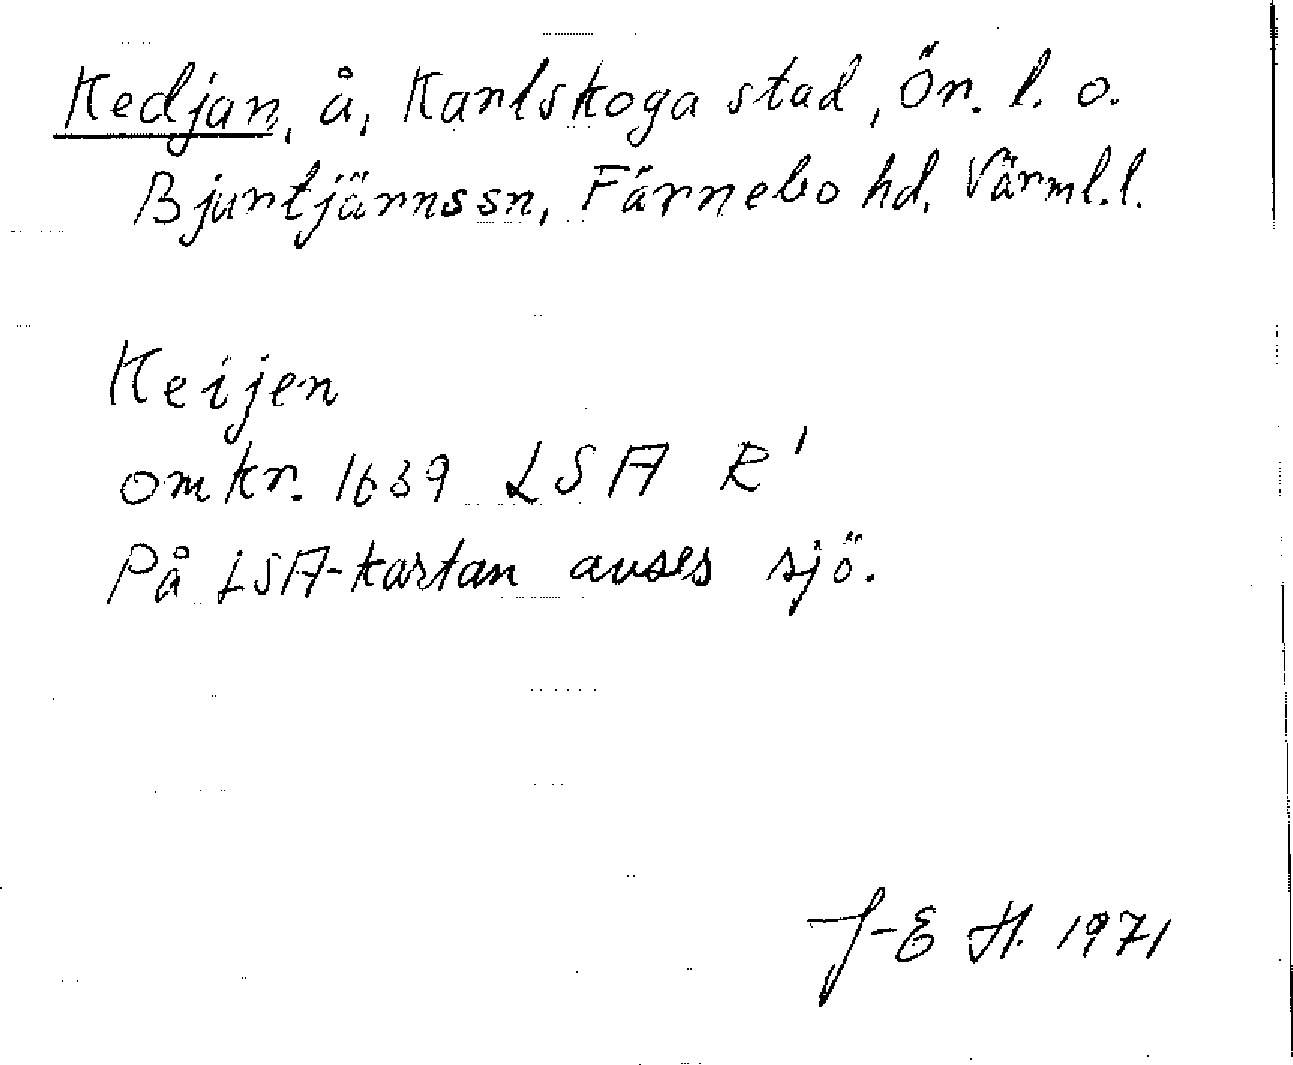 Kedjan, å, Karlskoga stad, Ör. l. o.
Bjurtjärnssn, Färnebo hd, Värml.l.
Keijen
omkr. 1639 LSA R'
På LSA-kartan avses sjö.
J-E H. 1971